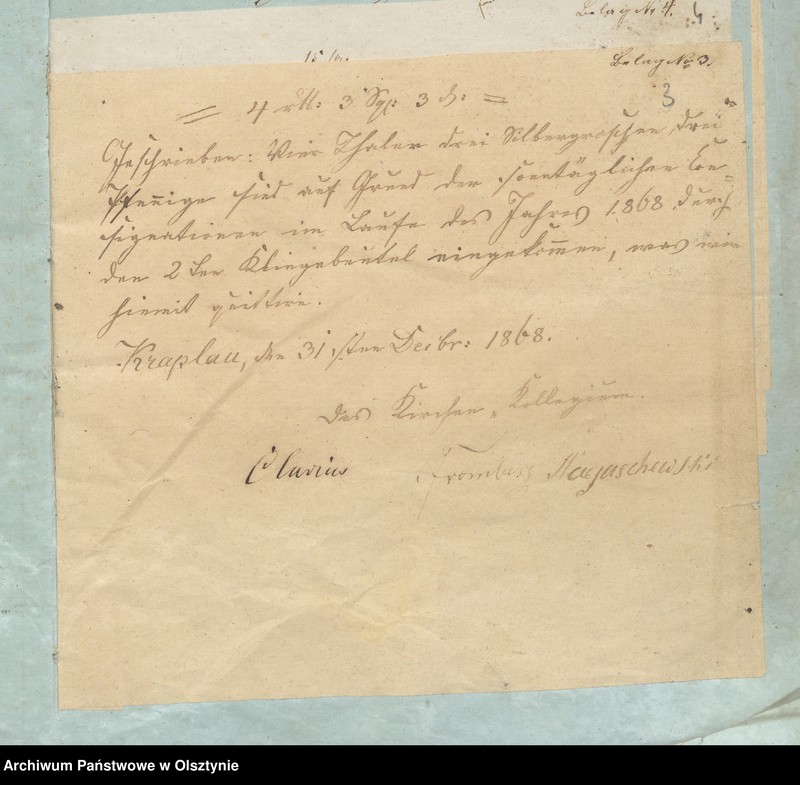 Belag No 4.
Belag No 3.
3
= 4 rtl: 3 Sgr: 3 d: =
Geschrieben: Vier Thaler drei Silbergroschen drei
Pfennige sind auf Grund der sonntäglichen Con=
signationen im Laufe des Jahres 1868 durch
den 2ten Klingebeutel eingekommen, was wir
hiemit quittire.
Kraplau, den 31sten Decbr: 1868.
Das Kirchen-Kollegium.
Clarius Fromberg Mayaschewski
Archiwum Państwowe w Olsztynie